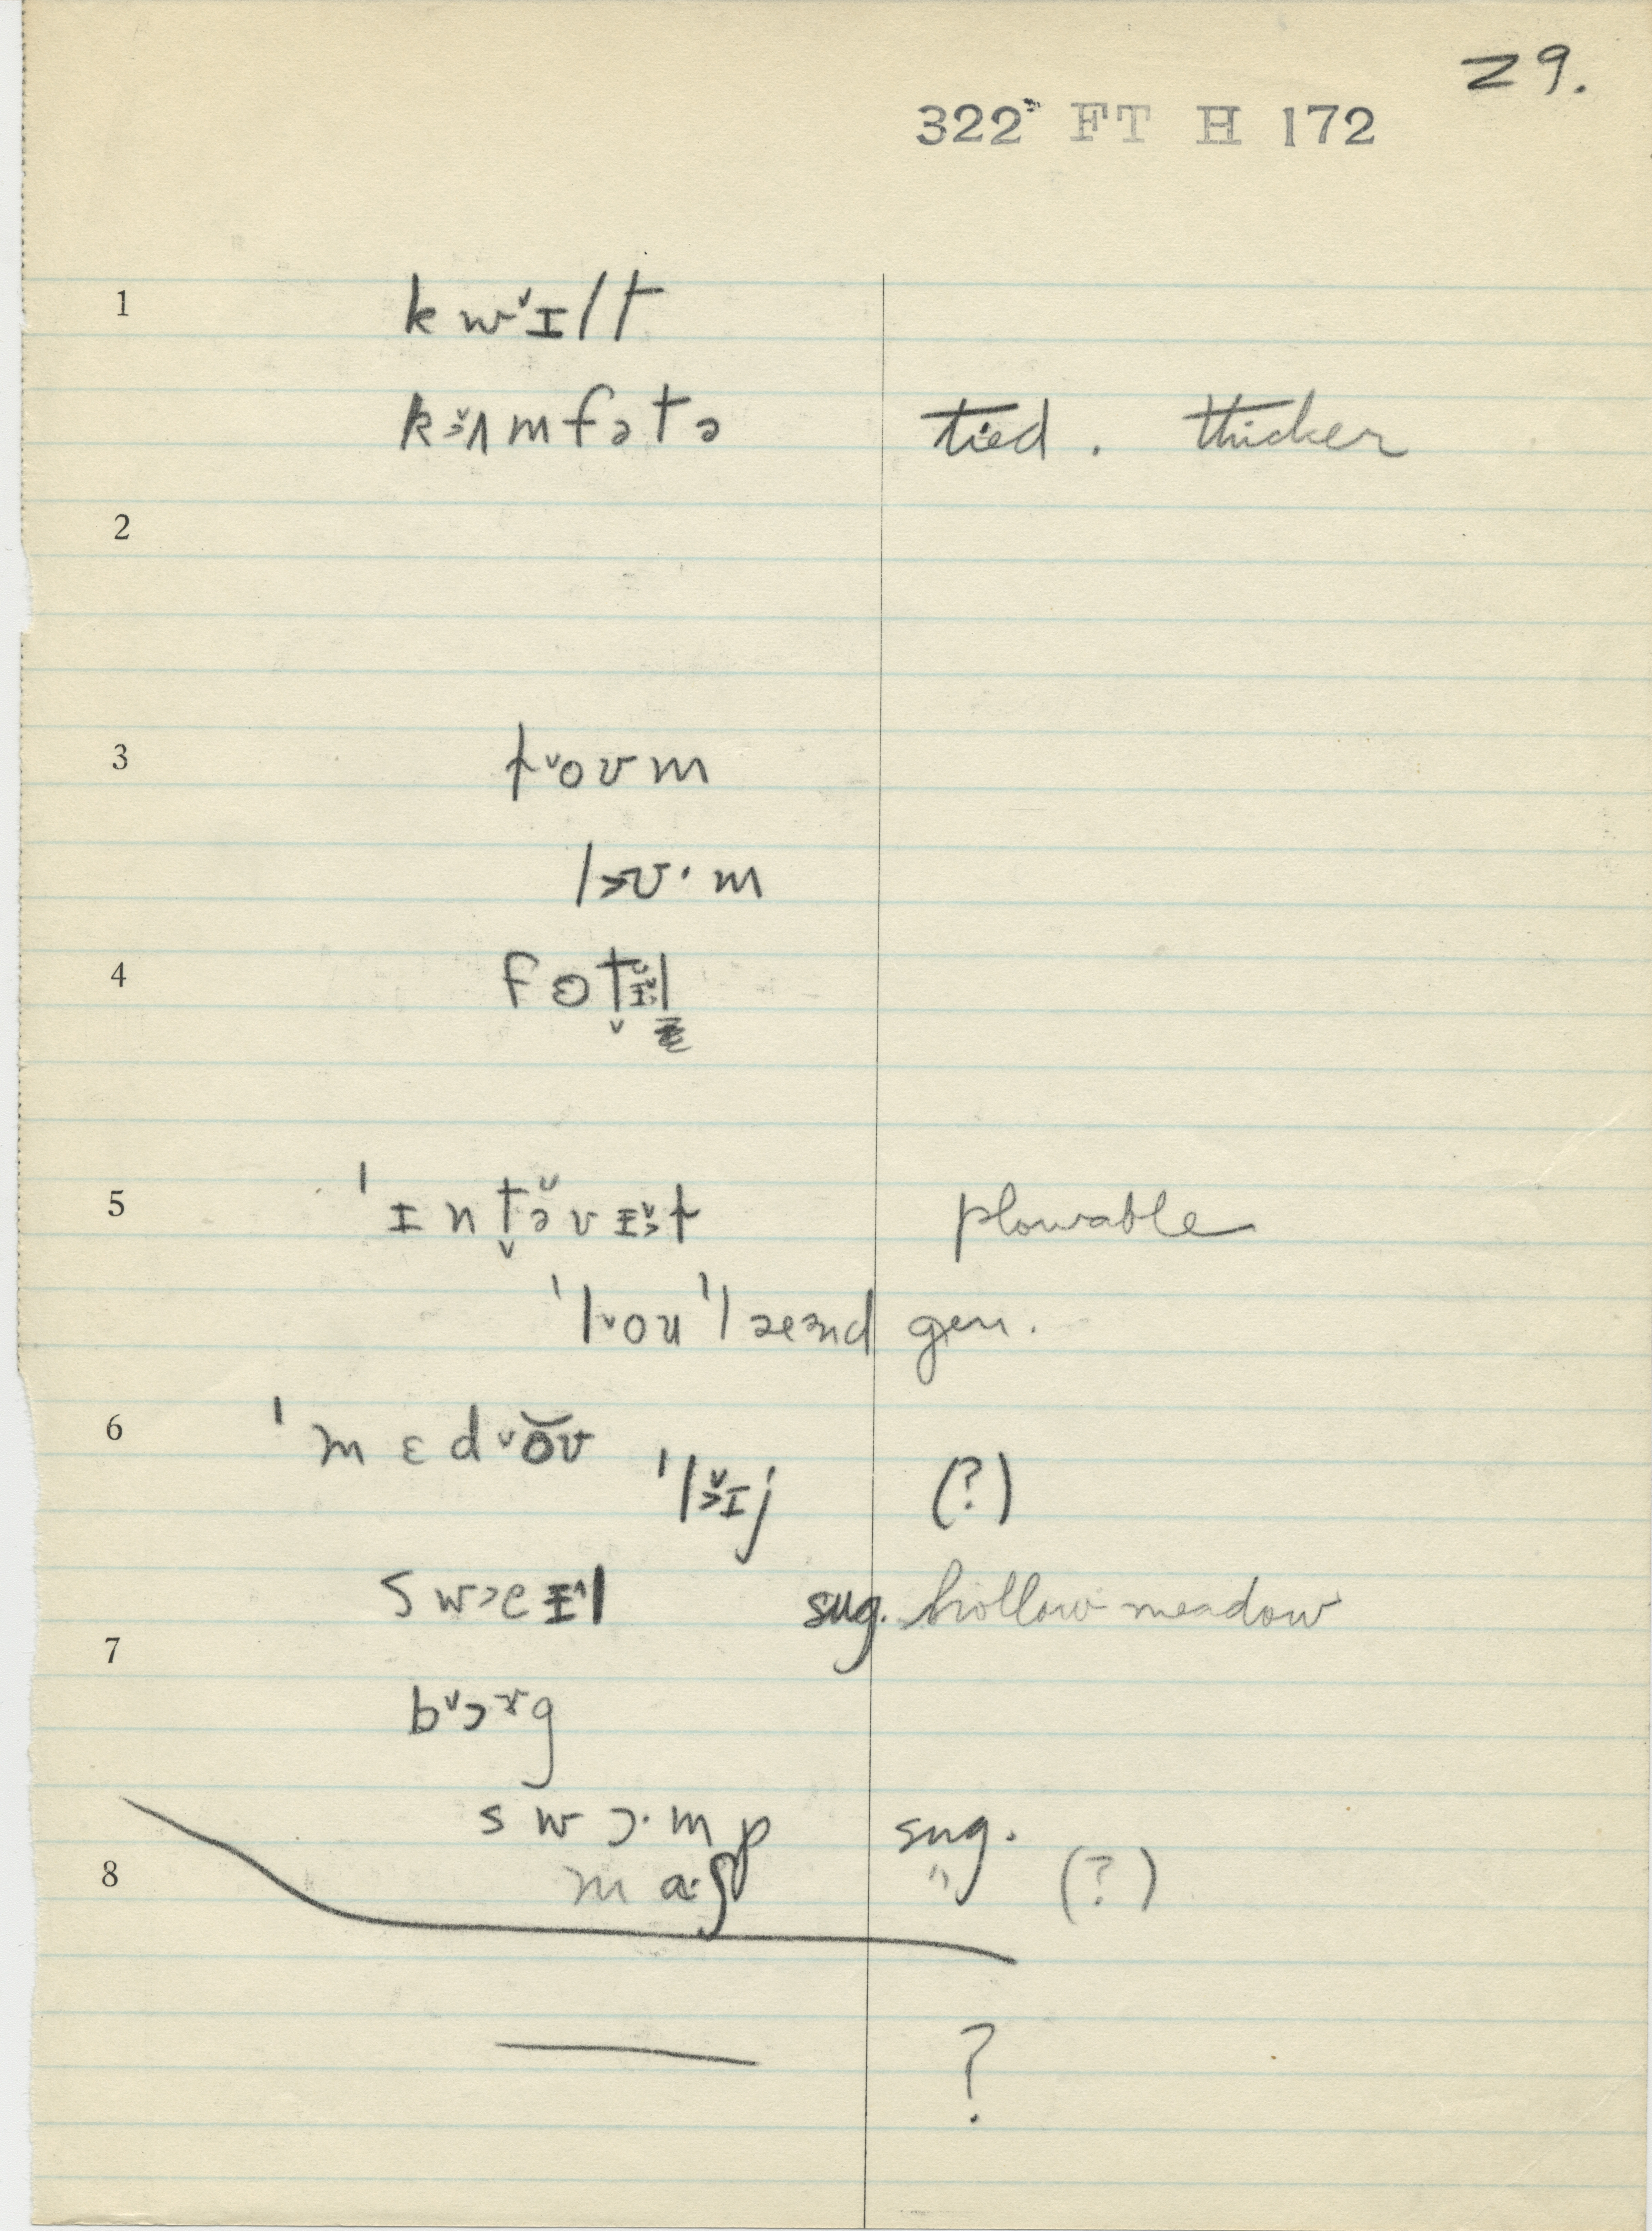 29.
322 FT H 172
1 kw˅ɪlt
k˃˅ʌmfətə tied. thicker
2
3 t˅oʊm
l˃ʊ·m
4 fɵt̬ɪl
5 ˈɪnt̬ə̆vɪ˅˃t plowable
ˈl˅ouˈlæend gen.
6 ˈmɛd˅ŏʊ
ˈl˅˃ɪj (?)
sw˃eɪ^l sug. hollow meadow
7
b˅ɔɤg
swɔ·mp sug.
8 ma·ʃ " (?)
?